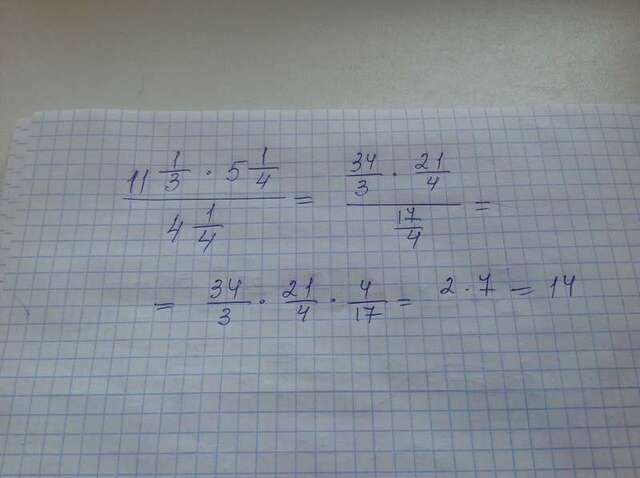 11 1/3 · 5 1/4 / 4 1/4 = 34/3 · 21/4 / 17/4 =
= 34/3 · 21/4 · 4/17 = 2 · 7 = 14